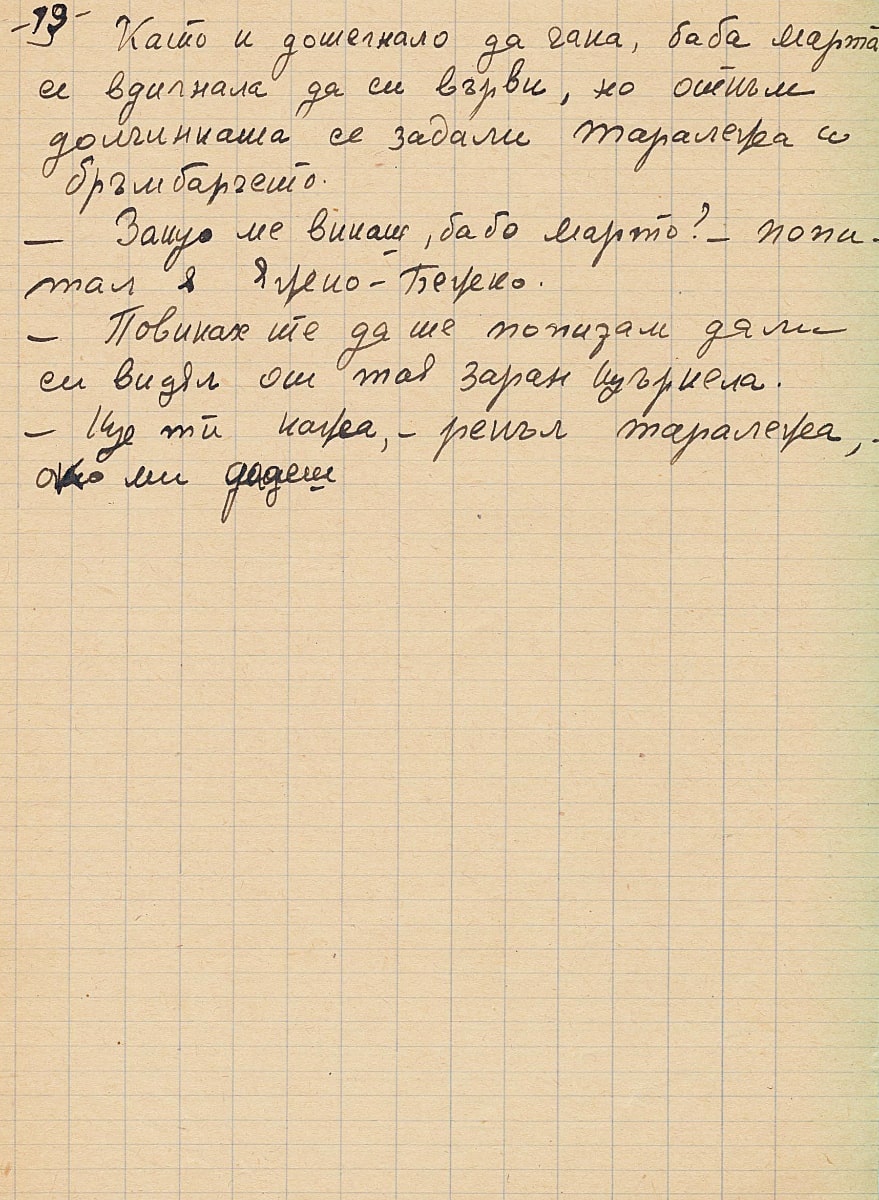 -19-
Като и дошегнало да чака, баба марта
се вдигнала да си върви, но откъм
долчинката се задали таралежа и
бръмбарчето.
— Защо ме викаш, бабо марто? – попи-
тал я Ежко-Бежко.
— Повиках те да те попитам дали
си видял от тая заран щъркела.
— Ще ти кажа, – рекъл таралежа, -
ако ми дадеш